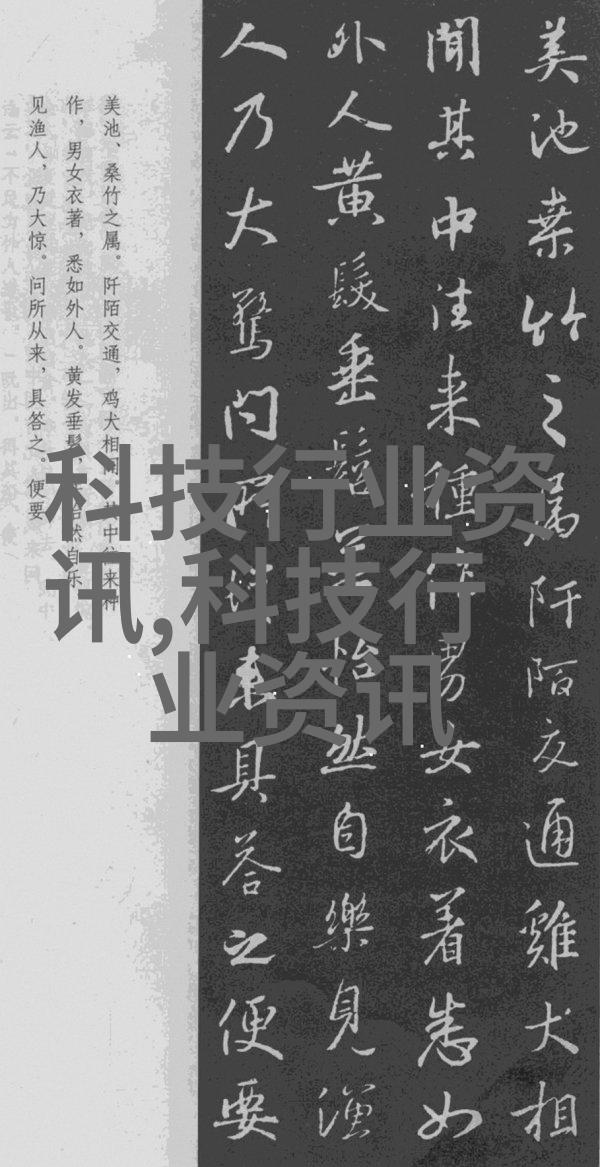 美池桒竹之属阡陌交通雞犬相
聞其中往来種作男女衣着悉如
外人黄髮垂髫並怡然自樂見漁
人乃大驚問所従来具荅之便要
美池、桑竹之属。阡陌交通，鸡犬相闻。其中往来种
作，男女衣著，悉如外人。黄发垂髫，并怡然自乐
见渔人，乃大惊。问所从来，具答之。便要
科技行业资
讯,科技行
业资讯